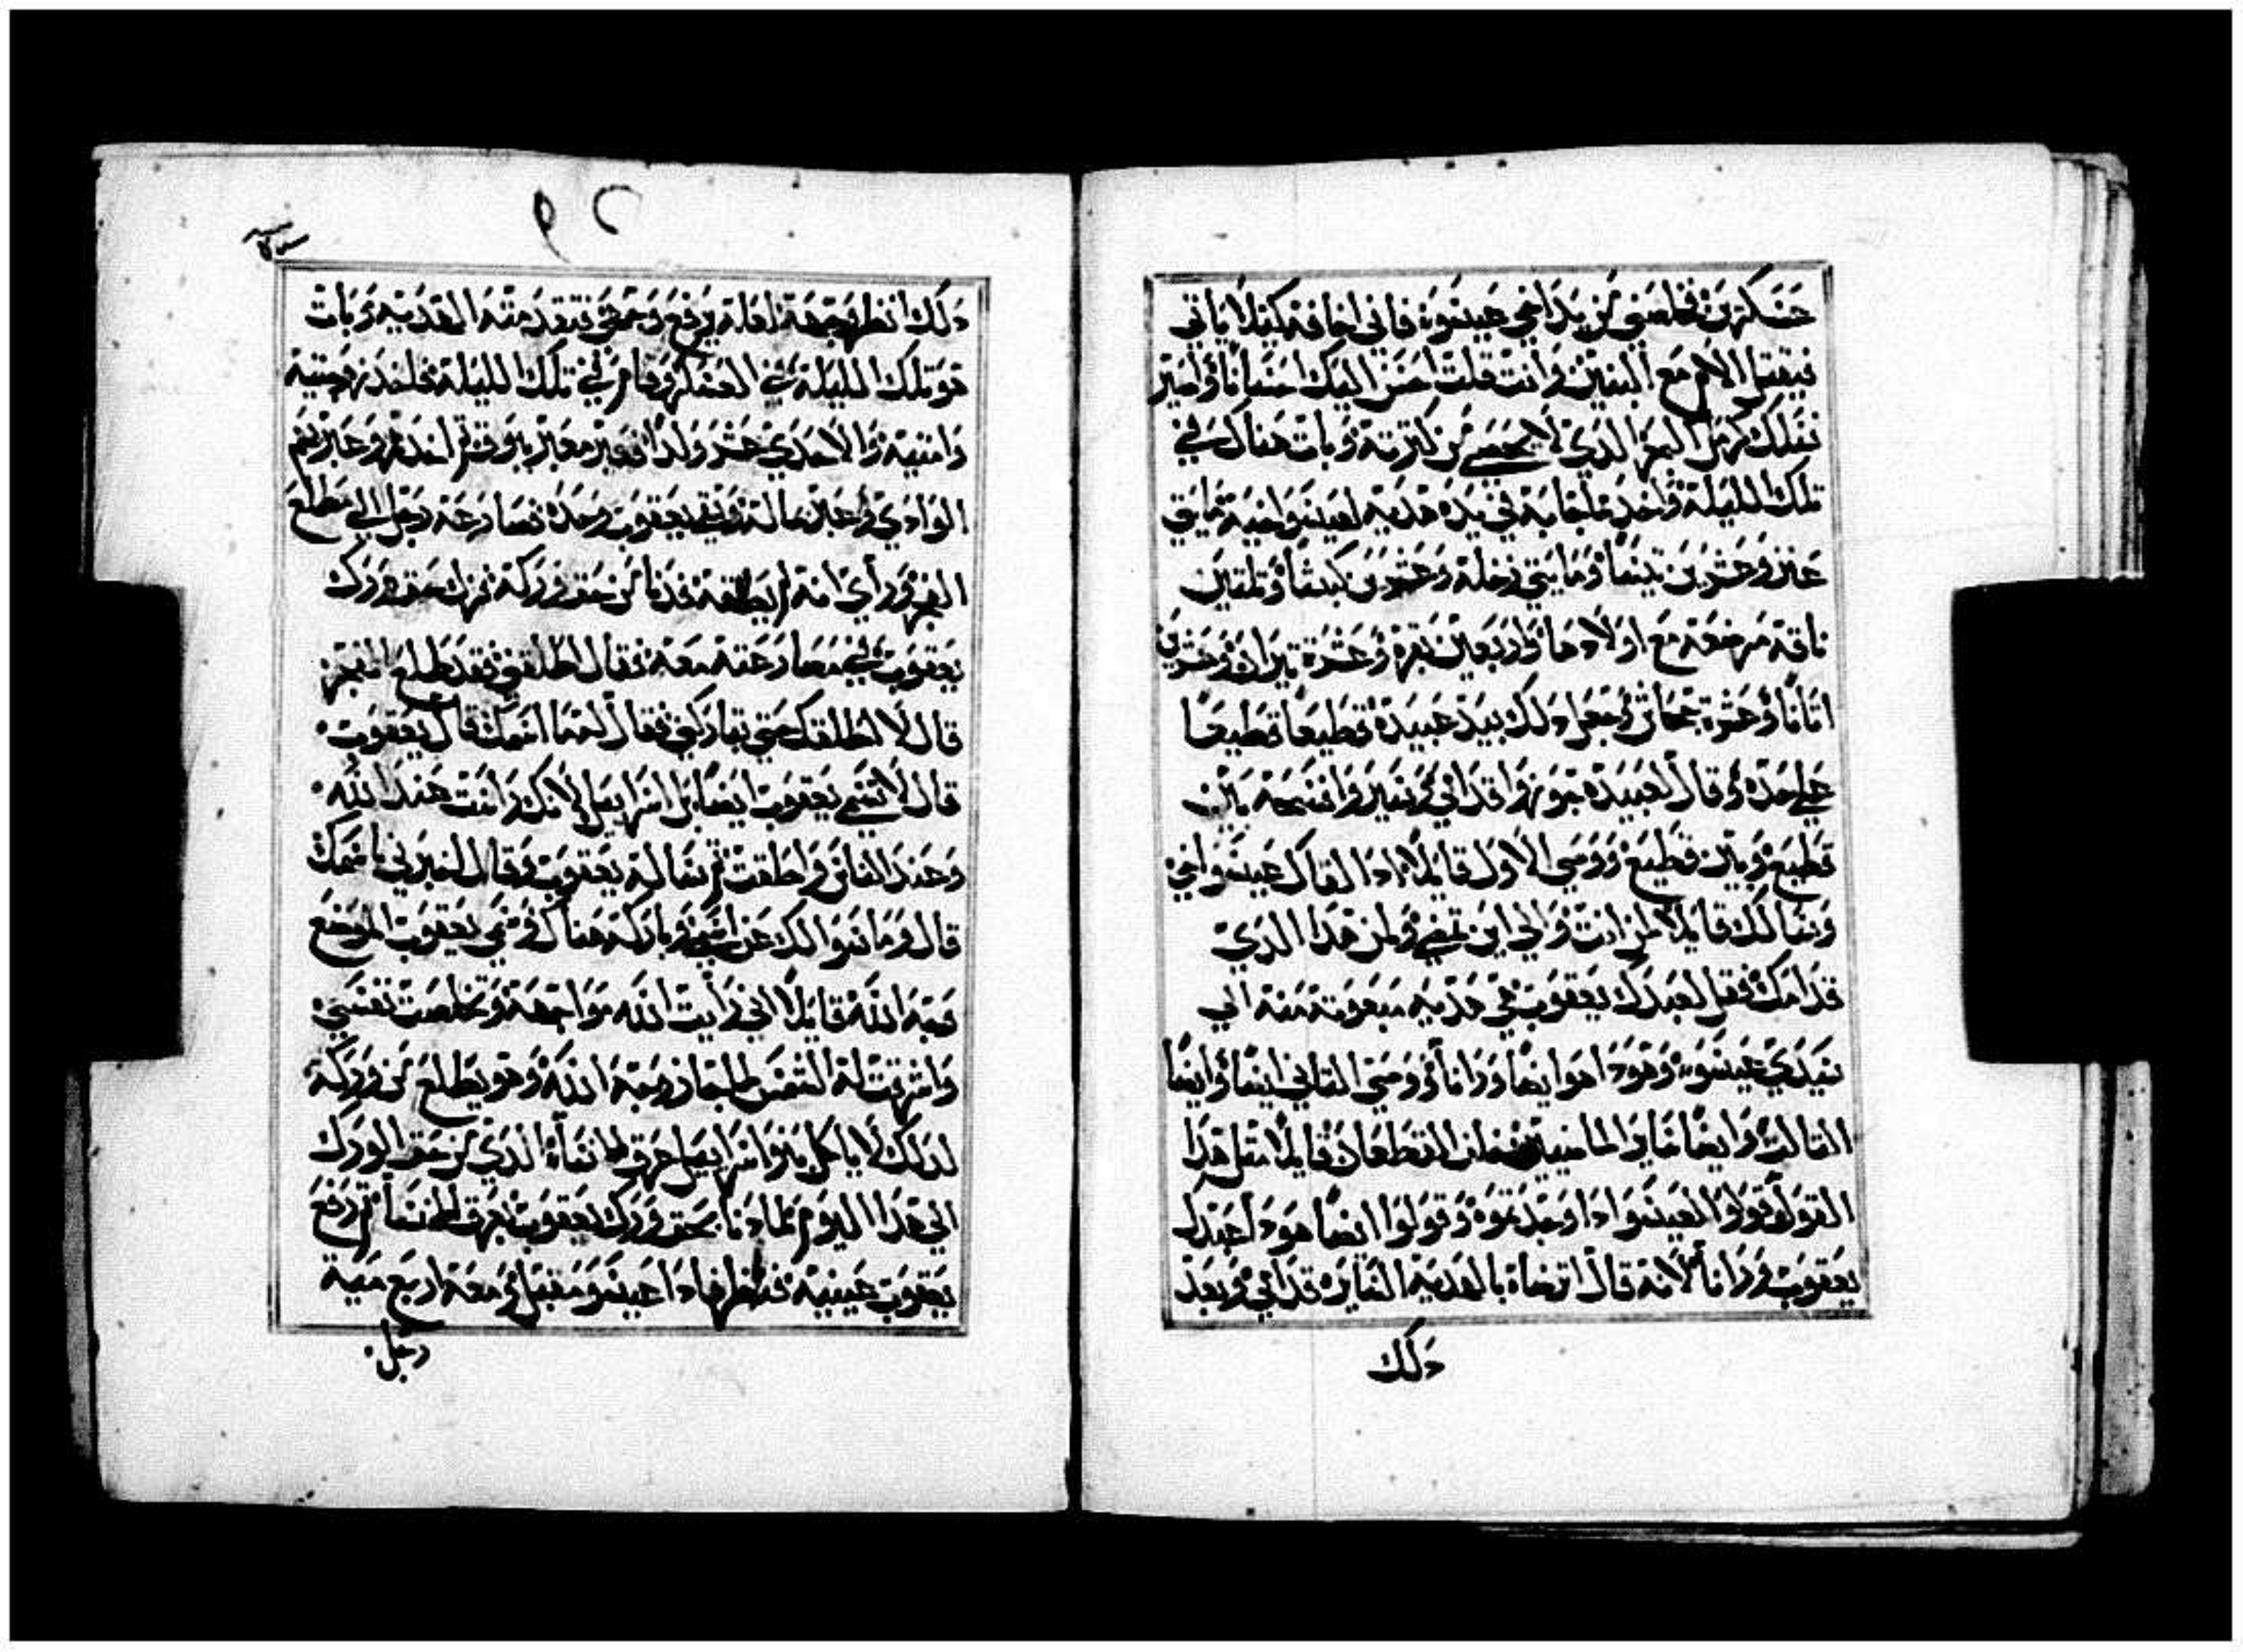 عسكرين فخلصني من يد اخي عيسو فاني اخافه كيلا ياتي
فيقتل الام مع البنين وانت قلت احسن اليك احسانا واصير
نسلك كرمل البحر الذي لا يحصى من كثرته وبات هناك في
تلك الليلة واخد مما جابه في يده هديه لعيسو اخيه مايتي
عنز وعشرين تيسا ومايتي رخله وعشرين كبشا وثلثين
ناقه مرضعه مع اولادها واربعين بقره وعشرة تيران وعشرين
اتانا وعشرة جحاش وجعل دلك بيد عبيده قطيعا قطيعا
على حده وقال لعبيده جوزوا قدامي وصيروا فسحه بين
قطيع وبين قطيع ووصى الاول قايلا ادا لقاك عيسو اخي
وسالك قايلا لمن انت والى اين تمضي ولمن هدا الدي
قدامك فقل لعبدك يعقوب هي هديه مبعوته منه الى
سيدي عيسو وهودا هو ايضا ورانا ووصى التاني ايضا وايضا
التالت وايضا ساير الماضيين خلف القطعان قايلا متل هدا
القول قولوا لعيسوا ادا وجدتموه وقولوا ايضا هودا عبدك
يعقوب ورانا لانه قال ارضاه بالهديه السايره قدامي وبعد
دلك
دلك انظر وجهه لعله يرفع وجهي فتقدمته الهديه وبات
هو تلك الليله في العسكر وقام في تلك الليله فاخد زوجتيه
وامتيه والاحدي عشر ولدا فعبر معبر يبوق ثم اخدهم وعبر بهم
الوادي وعبر ماله وبقي يعقوب وحده فصارعه رجل الى مطلع
الفجر وراي انه لم يطقه فدنا من حق وركه فزال حق ورك
يعقوب في مصارعته معه فقال اطلقني فقد طلع الفجر
قال لا اطلقك حتى تباركني فقال له ما اسمك قال يعقوب
قال لا يسمى يعقوب ايضا بل اسراييل لانك راست عند الله
وعند الناس واطقت ثم ساله يعقوب وقال اخبرني ما اسمك
قال وما سوالك عن اسمي وباركه هناك وسمى يعقوب الموضع
وجه الله قايلا اني رايت الله مواجهة وتخلصت نفسي
واشرقت له الشمس لما جاز وجه الله وهو يظلع من وركه
لدلك لا ياكل بنو اسراييل عرق النساء الدي من حق الورك
الى هدا اليوم لما دنا بحق ورك يعقوب بعرق النسا ثم رفع
يعقوب عينيه فنظر فادا عيسو مقبل ومعه اربع ميه
رجل